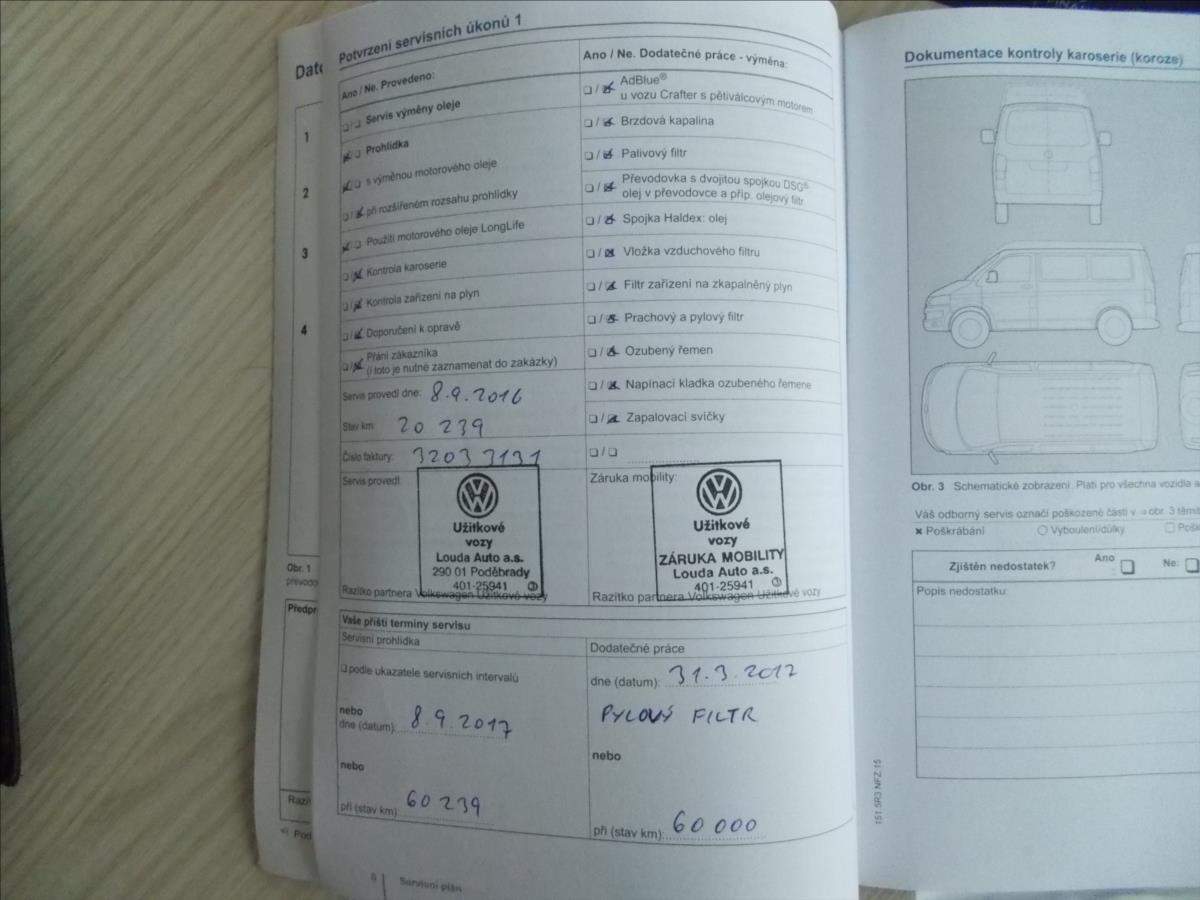 Potvrzení servisních úkonů 1
Ano / Ne. Provedeno:
❏/❏ Servis výměny oleje
❏/❏ Prohlídka
❏/❏ s výměnou motorového oleje
❏/❏ při rozšířeném rozsahu prohlídky
❏/❏ Použití motorového oleje LongLife
❏/❏ Kontrola karoserie
❏/❏ Kontrola zařízení na plyn
❏/❏ Doporučení k opravě
❏/❏ Přání zákazníka
(i toto je nutné zaznamenat do zakázky)
Servis provedl dne: 8.9.2016
Stav km: 20 239
Číslo faktury: 32033131
Servis provedl:
Užitkové
vozy
Louda Auto a.s.
290 01 Poděbrady
401-25941
Razítko partnera Volkswagen Užitkové vozy
Ano / Ne. Dodatečné práce - výměna:
❏/❏ AdBlue®
u vozu Crafter s pětiválcovým motorem
❏/❏ Brzdová kapalina
❏/❏ Palivový filtr
❏/❏ Převodovka s dvojitou spojkou DSG®
olej v převodovce a příp. olejový filtr
❏/❏ Spojka Haldex: olej
❏/❏ Vložka vzduchového filtru
❏/❏ Filtr zařízení na zkapalněný plyn
❏/❏ Prachový a pylový filtr
❏/❏ Ozubený řemen
❏/❏ Napínací kladka ozubeného řemene
❏/❏ Zapalovací svíčky
❏/❏
Záruka mobility:
Užitkové
vozy
ZÁRUKA MOBILITY
Louda Auto a.s.
401-25941
Razítko partnera Volkswagen Užitkové vozy
Vaše příští termíny servisu
Servisní prohlídka
❏ podle ukazatele servisních intervalů
nebo
dne (datum): 8.9.2017
nebo
při (stav km): 60 239
Dodatečné práce
dne (datum): 31.3.2017
PYLOVÝ FILTR
nebo
při (stav km): 60 000
8 | Servisní plán
1
2
3
4
Obr. 1
Dokumentace kontroly karoserie (koroze)
Obr. 3 Schematické zobrazení. Platí pro všechna vozidla
Váš odborný servis označí poškozené části v
✖ Poškrábání ○ Vybouleni/důlky
Zjištěn nedostatek? Ano ❏ Ne: ❏
Popis nedostatku:
151.5R3.NFZ.15